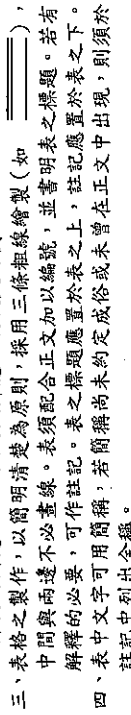 三、表格之製作，以簡明清楚為原則，採用三條粗線繪製（如 ），
中間與兩邊不必畫線。表須配合正文加以編號，並書明表之標題。若有
解釋的必要，可作註記。表之標題應置於表之上，註記應置於表之下。
四、表中文字可用簡稱，若簡稱尚未約定成俗或未曾在正文中出現，則須於
註記中列出全稱。